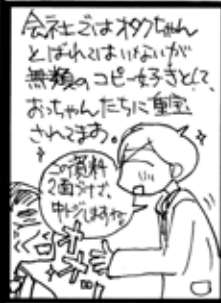 会社ではオタクちゃん
とばれてはいないが
無類のコピー好きとして、
おっちゃんたちに重宝
されてます。
この資料
2面つけで、
中トジしますね